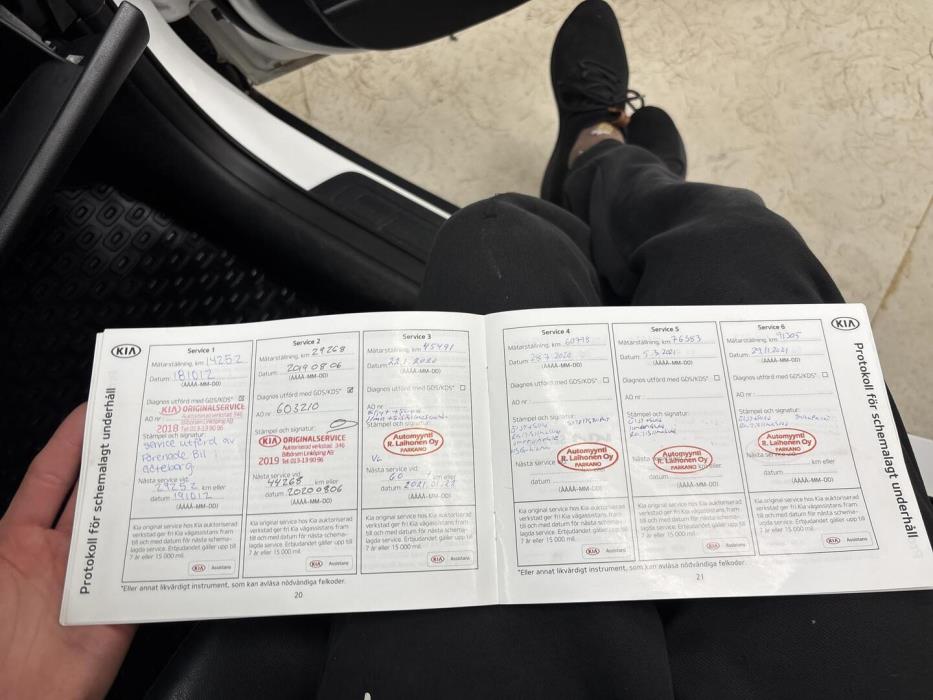 KIA
Protokoll för schemalagt underhåll
Service 1
Mätarställning, km 14252
Datum 181012
(ÅÅÅÅ-MM-DD)
Diagnos utförd med GDS/KDS*
AO nr
KIA ORIGINALSERVICE
Auktoriserad verkstad 346
Bilbörsen Linköping AB
2018 Tel 013-13 90 96
Stämpel och signatur:
Service utförd av
Förenade Bil i
Göteborg
Nästa service vid:
29252 km eller
datum 191012
(ÅÅÅÅ-MM-DD)
Kia original service hos Kia auktoriserad
verkstad ger fri Kia vägassistans fram
till och med datum för nästa schema-
lagda service. Erbjudandet gäller upp till
7 år eller 15 000 mil.
KIA Assistans
Service 2
Mätarställning, km 29268
Datum: 20190806
(ÅÅÅÅ-MM-DD)
Diagnos utförd med GDS/KDS*
AO nr 603210
Stämpel och signatur:
KIA ORIGINALSERVICE
Auktoriserad verkstad 346
Bilbörsen Linköping AB
2019 Tel 013-13 90 96
Nästa service vid:
44268 km eller
datum 20200806
(ÅÅÅÅ-MM-DD)
Kia original service hos Kia auktoriserad
verkstad ger fri Kia vägassistans fram
till och med datum för nästa schema-
lagda service. Erbjudandet gäller upp till
7 år eller 15 000 mil.
KIA Assistans
Service 3
Mätarställning, km 45491
Datum: 22.1.2020
(ÅÅÅÅ-MM-DD)
Diagnos utförd med GDS/KDS*
AO nr
Stämpel och signatur:
Automyynti
R. Laihonen Oy
PARKANO
Nästa service vid:
60 km eller
datum 2021.01.22
(ÅÅÅÅ-MM-DD)
Kia original service hos Kia auktoriserad
verkstad ger fri Kia vägassistans fram
till och med datum för nästa schema-
lagda service. Erbjudandet gäller upp till
7 år eller 15 000 mil.
KIA Assistans
*Eller annat likvärdigt instrument, som kan avläsa nödvändiga felkoder.
20
Service 4
Mätarställning, km 60778
Datum: 28.7.2020
(ÅÅÅÅ-MM-DD)
Diagnos utförd med GDS/KDS*
AO nr
Stämpel och signatur:
Automyynti
R. Laihonen Oy
PARKANO
Nästa service
datum
(ÅÅÅÅ-MM-DD)
Kia original service hos Kia auktoriserad
verkstad ger fri Kia vägassistans fram
till och med datum för nästa schema-
lagda service. Erbjudandet gäller upp till
7 år eller 15 000 mil.
KIA Assistans
Service 5
Mätarställning, km 76583
Datum: 5.3.2021
(ÅÅÅÅ-MM-DD)
Diagnos utförd med GDS/KDS*
AO nr
Stämpel och signatur:
Automyynti
R. Laihonen Oy
PARKANO
Nästa service km eller
datum
(ÅÅÅÅ-MM-DD)
Kia original service hos Kia auktoriserad
verkstad ger fri Kia vägassistans fram
till och med datum för nästa schema-
lagda service. Erbjudandet gäller upp till
7 år eller 15 000 mil.
KIA Assistans
Service 6
Mätarställning, km 91305
Datum: 29.11.2021
(ÅÅÅÅ-MM-DD)
Diagnos utförd med GDS/KDS*
AO nr
Stämpel och signatur:
Automyynti
R. Laihonen Oy
PARKANO
Nästa service vid:
km eller
datum
(ÅÅÅÅ-MM-DD)
Kia original service hos Kia auktoriserad
verkstad ger fri Kia vägassistans fram
till och med datum för nästa schema-
lagda service. Erbjudandet gäller upp till
7 år eller 15 000 mil.
KIA Assistans
*Eller annat likvärdigt instrument, som kan avläsa nödvändiga felkoder.
21
KIA
Protokoll för schemalagt underhåll